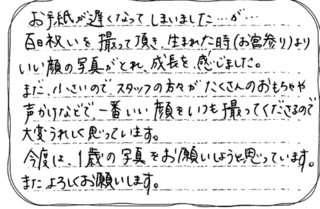 お手紙が遅くなってしまいました…が…
百日祝いを撮って頂き、生まれた時(お宮参り)より
いい顔の写真がとれ、成長を感じました。
また、小さいので、スタッフの方々がたくさんのおもちゃや
声かけなどで、一番いい顔をいつも撮ってくださるので
大変うれしく思っています。
今度は、1歳の写真をお願いしようと思っています。
またよろしくお願いします。